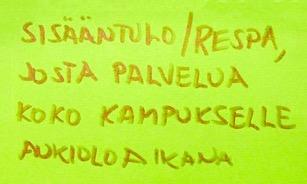 SISÄÄNTULO/RESPA,
JOSTA PALVELUA
KOKO KAMPUKSELLE
AUKIOLOAIKANA